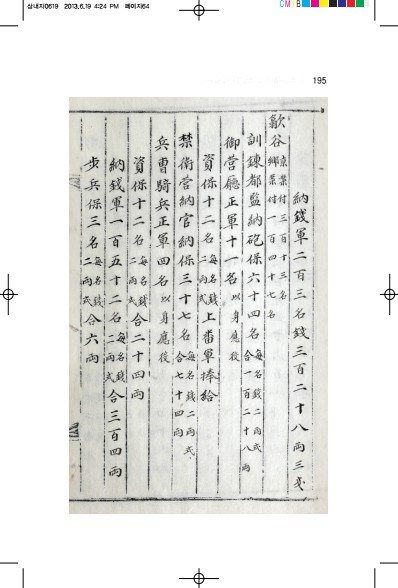 삼내지0619 2013.6.19 4:24 PM 페이지64
CMYB
195
納錢軍二百三名錢三百二十八兩三戔
歙谷 京案付三百十三名 鄕案付一百四十七名
訓鍊都監納砲保六十四名 每名錢二兩式 合一百二十八兩
御營廳正軍十一名 以身應役
資保十二名 每名錢二兩式 上番軍捧給
禁衛營納官納保三十七名 每名錢二兩式 合七十四兩
兵曹騎兵正軍四名 以身應役
資保十二名 每名錢二兩式 合二十四兩
納錢軍一百五十二名 每名錢二兩式 合三百四兩
步兵保三名 每名錢二兩式 合六兩